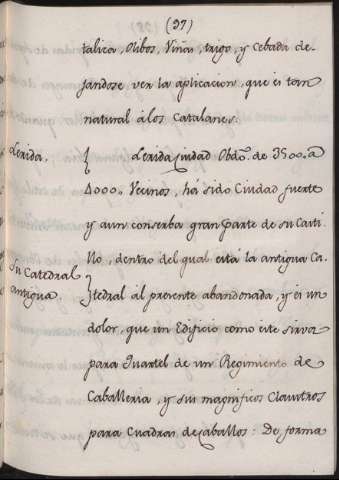 (97)
talica, Olibos, Viñas, trigo, y Cebada de-
jandose ver la aplicacion, que es tan
natural á los Catalanes.
Lerida. { Lerida Ciudad Obdo. de 3500. a
4000. Vecinos, há sido Ciudad fuerte
y aun conserba gran parte de su Casti-
llo, dentro del qual está la antigua Ca-
Su Catedral antigua. } tedral al presente abandonada, y es un
dolor, que un Edificio como este sirva
para Quartel de un Regimiento de
Caballeria, y sus magnificos Claustros
para Cuadras de caballos: De forma